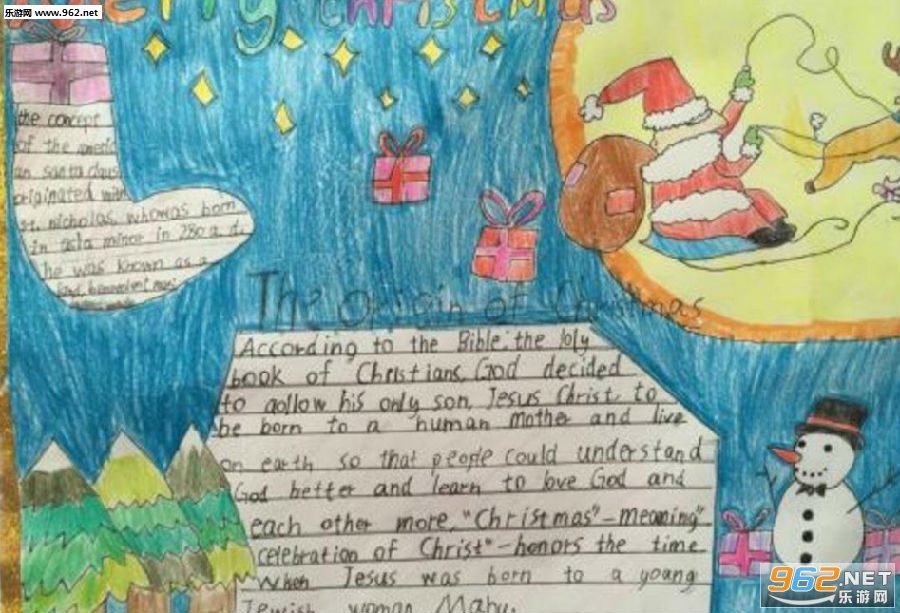 乐游网 www.962.net
Merry christmas
the concept
of the americ
an santa claus
originated
st. nicholas, who was born
in asia minor in 280 a. d.
he was known as a
kind, benevolent man.
The Origin of Christmas
According to the Bible, the holy
book of Christians, God decided
to aollow his only son, Jesus Christ to
be born to a "human mother and live
on earth so that people could understand
God better and learn to love God and
each other more. "Christmas"-meaning"
celebration of Christ"-honors the time
when Jesus was born to a young
Jewish woman Mary.
962.NET
乐游网